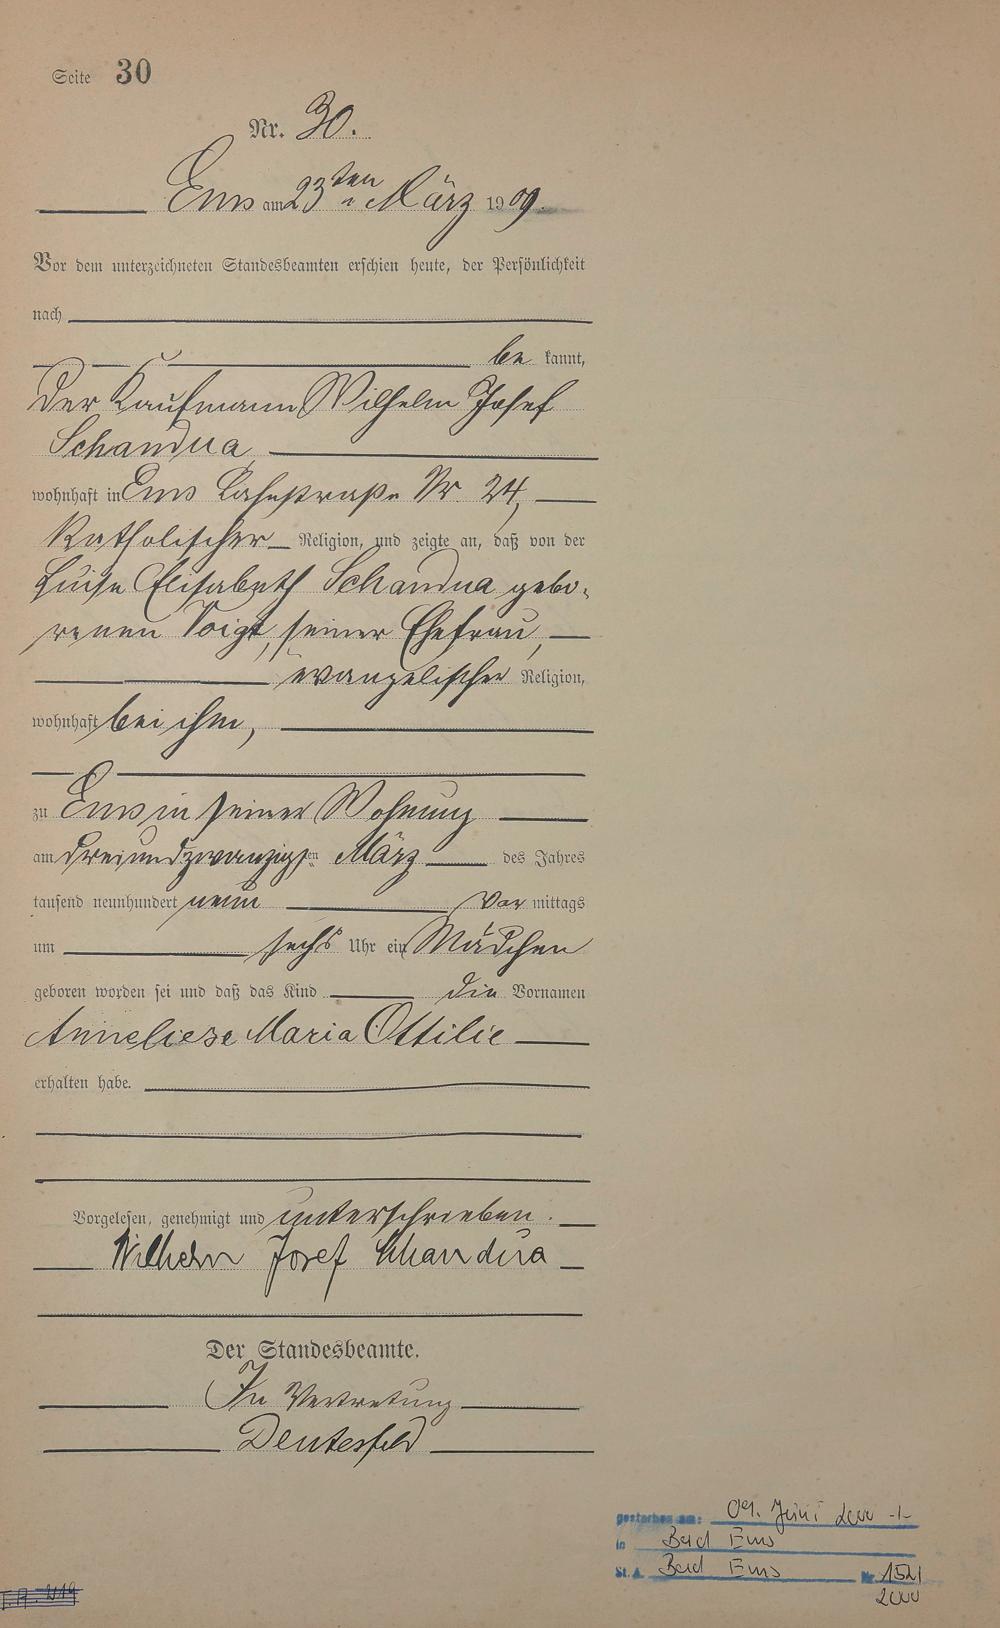 Seite 30
Nr. 30.
Ems am 23ten März 1909.
Vor dem unterzeichneten Standesbeamten erschien heute, der Persönlichkeit
nach
be kannt,
der Kaufmann Wilhelm Josef
Schandua
wohnhaft in Ems Lahnstraße Nr 24,
Katholischer Religion, und zeigte an, daß von der
Luise Elisabeth Schandua gebo-
renen Voigt, seiner Ehefrau,
evangelischer Religion,
wohnhaft bei ihm,
zu Ems in seiner Wohnung
am dreiundzwanzigsten März des Jahres
tausend neunhundert neun Vor mittags
um sechs Uhr ein Mädchen
geboren worden sei und daß das Kind die Vornamen
Anneliese Maria Ottilie
erhalten habe.
Vorgelesen, genehmigt und unterschrieben.
Wilhelm Josef Schandua
Der Standesbeamte.
In Vertretung
Deutesfeld
gestorben am: 09. Juni 2000
in Bad Ems
St. A. Bad Ems Nr 152/
2000